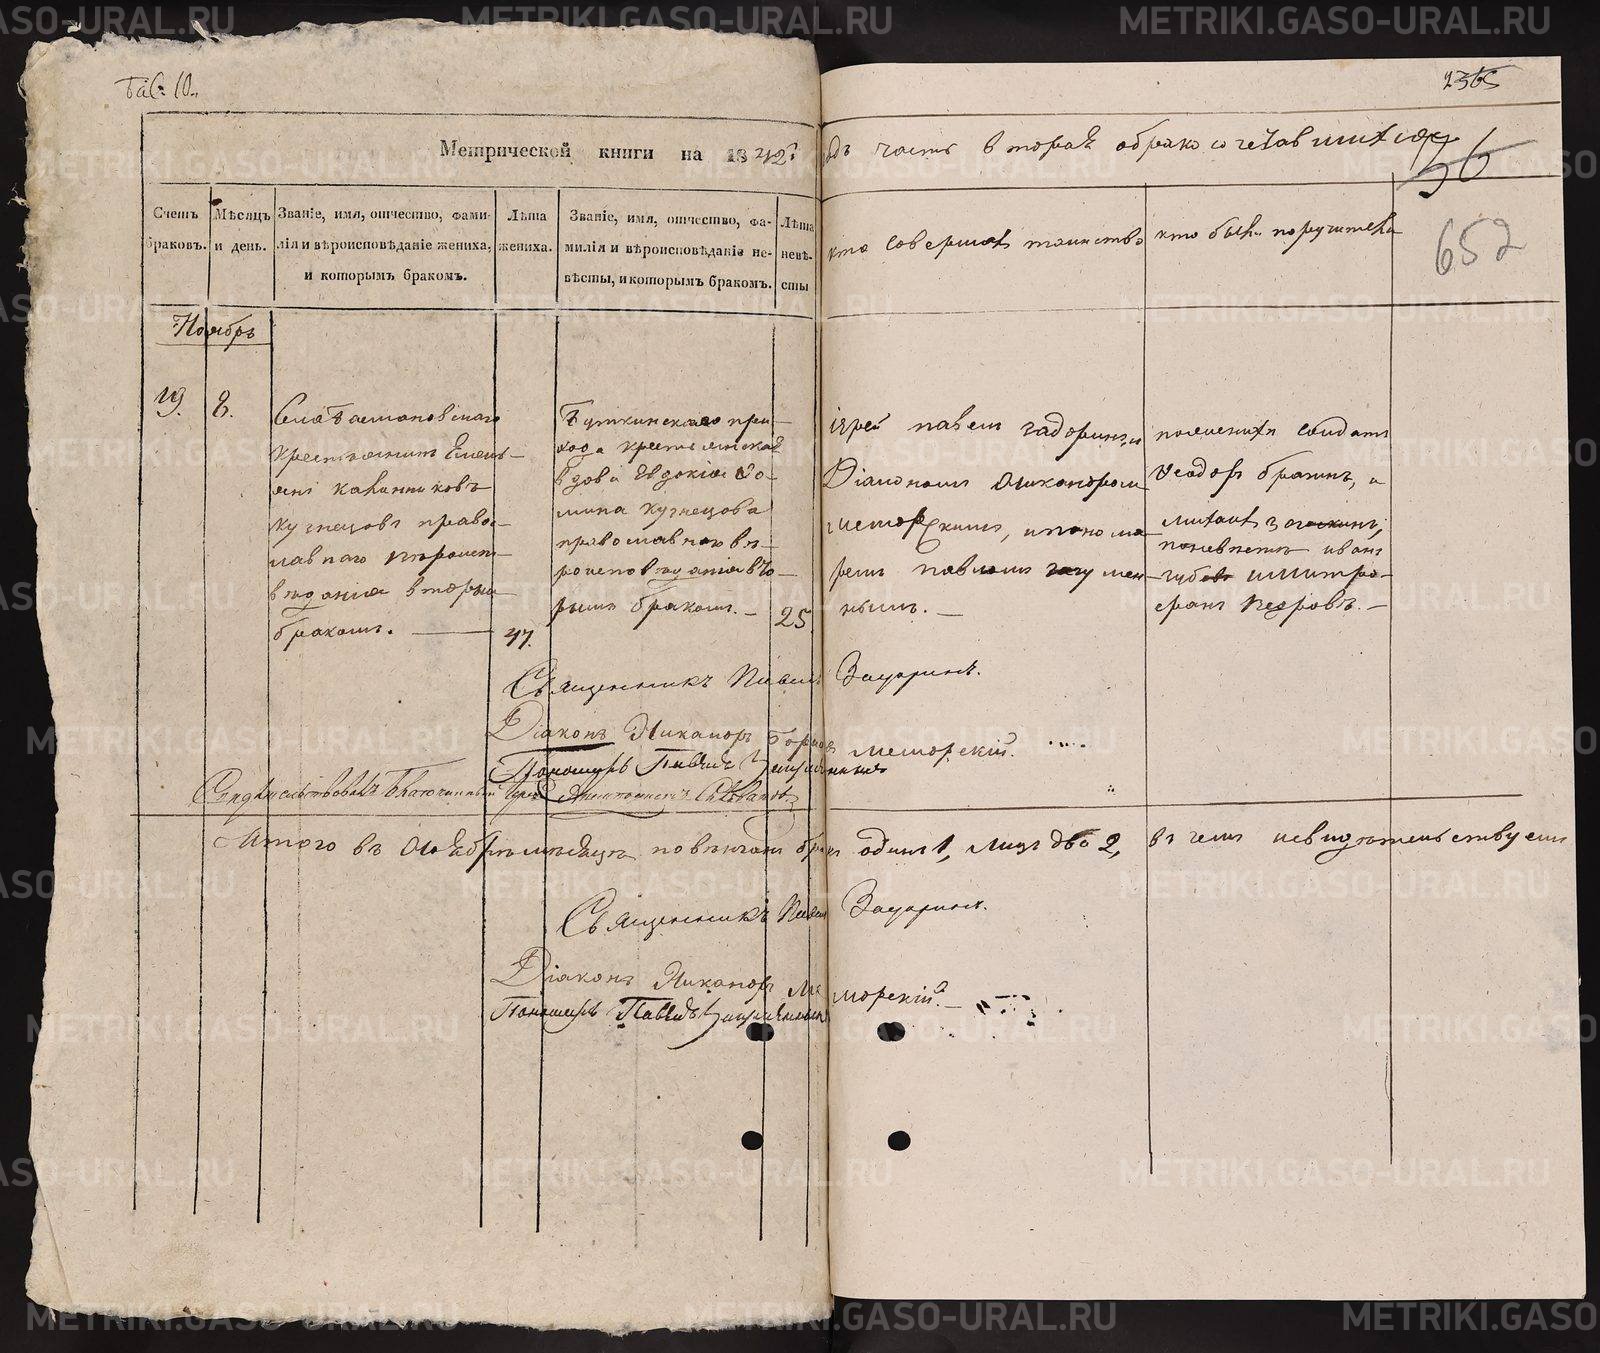 METRIKI.GASO-URAL.RU
2365
Метрической книги на 1842й
годъ часть вторая о бракосочетавшихся
56
652
Счетъ браковъ.
Мѣсяцъ и день.
Званіе, имя, отчество, фами-
лія и вѣроисповѣданіе жениха,
и которымъ бракомъ.
Лѣта
жениха.
Званіе, имя, отчество, фа-
милія и вѣроисповѣданіе не-
вѣсты, и которымъ бракомъ.
Лѣта
невѣ-
сты
кто совершалъ таинство
кто были поручители
Ноябрь
19.
8.
крестьянинъ Емель-
янъ Калинниковъ
Кузнецовъ право-
славнаго вѣроиспо-
вѣданія вторымъ
бракомъ.
47.
Буткинскаго при-
хода крестьянская
вдова Евдокія Фо-
мина Кузнецова
православнаго вѣ-
роисповѣданія вто-
рымъ бракомъ.
25.
іерей Павелъ Задоринъ съ
Діакономъ Никаноромъ
и поно-
маремъ Павломъ
нымъ.
по женихѣ солдатъ
Ѳеодоръ Брагинъ, и
по невѣстѣ Иванъ
Петровъ.
Священникъ Павелъ Задоринъ.
Діаконъ Никаноръ
Пономарь Павелъ
Свидѣтельствовалъ Благочинный Іерей
Итого въ Ноябрѣ мѣсяцѣ повѣнчанъ бракъ одинъ 1, лицъ два 2, въ чемъ и свидѣтельствуемъ
Священникъ Павелъ Задоринъ.
Діаконъ Никаноръ
Пономарь Павелъ